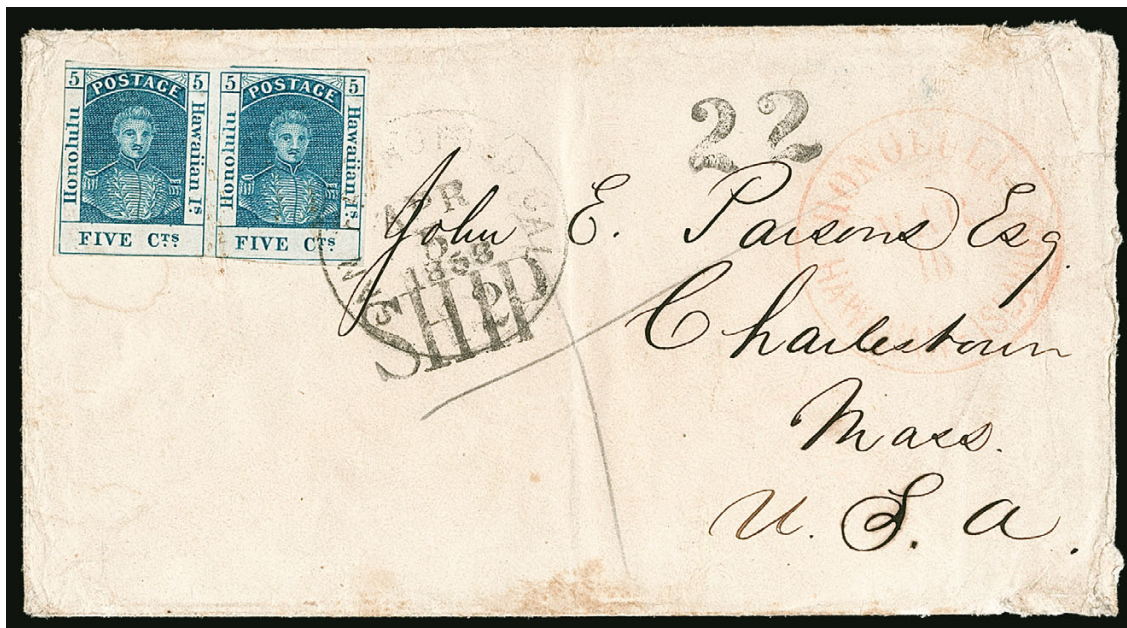 5 POSTAGE 5
Honolulu
Hawaiian Is.
FIVE CTS
5 POSTAGE 5
Honolulu
Hawaiian Is.
FIVE CTS
APR
5
1858
SHIP
22
HONOLULU
John E. Parsons Esq.
Charlestown
Mass.
U. S. A.